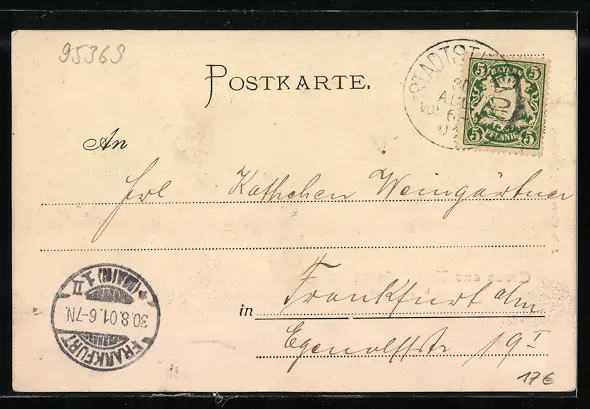 95369
POSTKARTE.
STADTST
30
AUG
6
01
5 BAYERN 5
5 PFENNIG 5
An
Frl. Käthchen Weingärtner
in Frankfurt a/m
Egenolffstr 19 I
FRANKFURT
30.8.01.6-7N.
*(MAIN) 1. II
17€